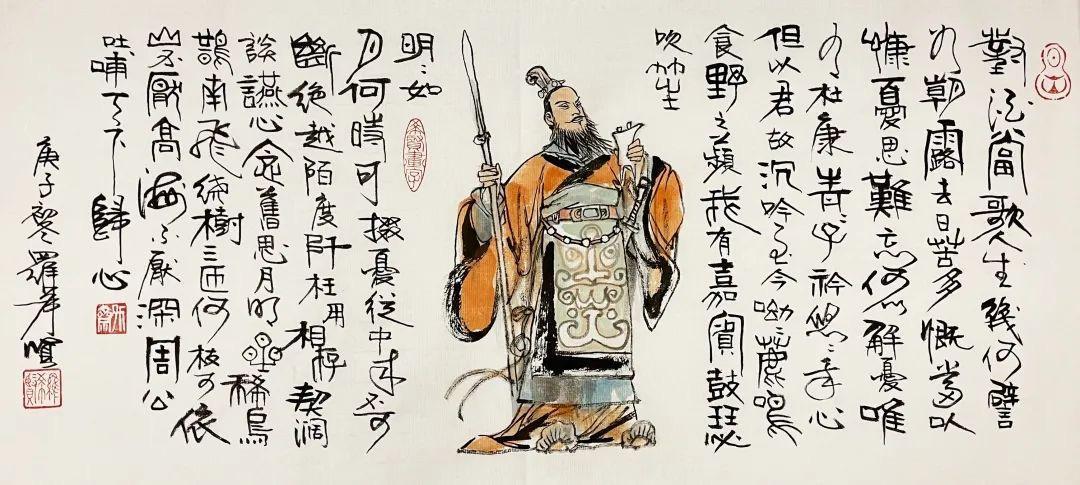 對酒當歌人生幾何譬
如朝露去日苦多慨當以
慷憂思難忘何以解憂唯
有杜康青々子衿悠々我心
但以君故沉吟至今呦々鹿鳴
食野之蘋我有嘉賓鼓瑟
吹笙
明々如
月何時可掇憂從中來不可
斷絕越陌度阡枉用相存契闊
談讌心念舊恩月明星稀烏
鵲南飛繞樹三匝何枝可依
山不厭高海不厭深周公
吐哺天下歸心
庚子羅希